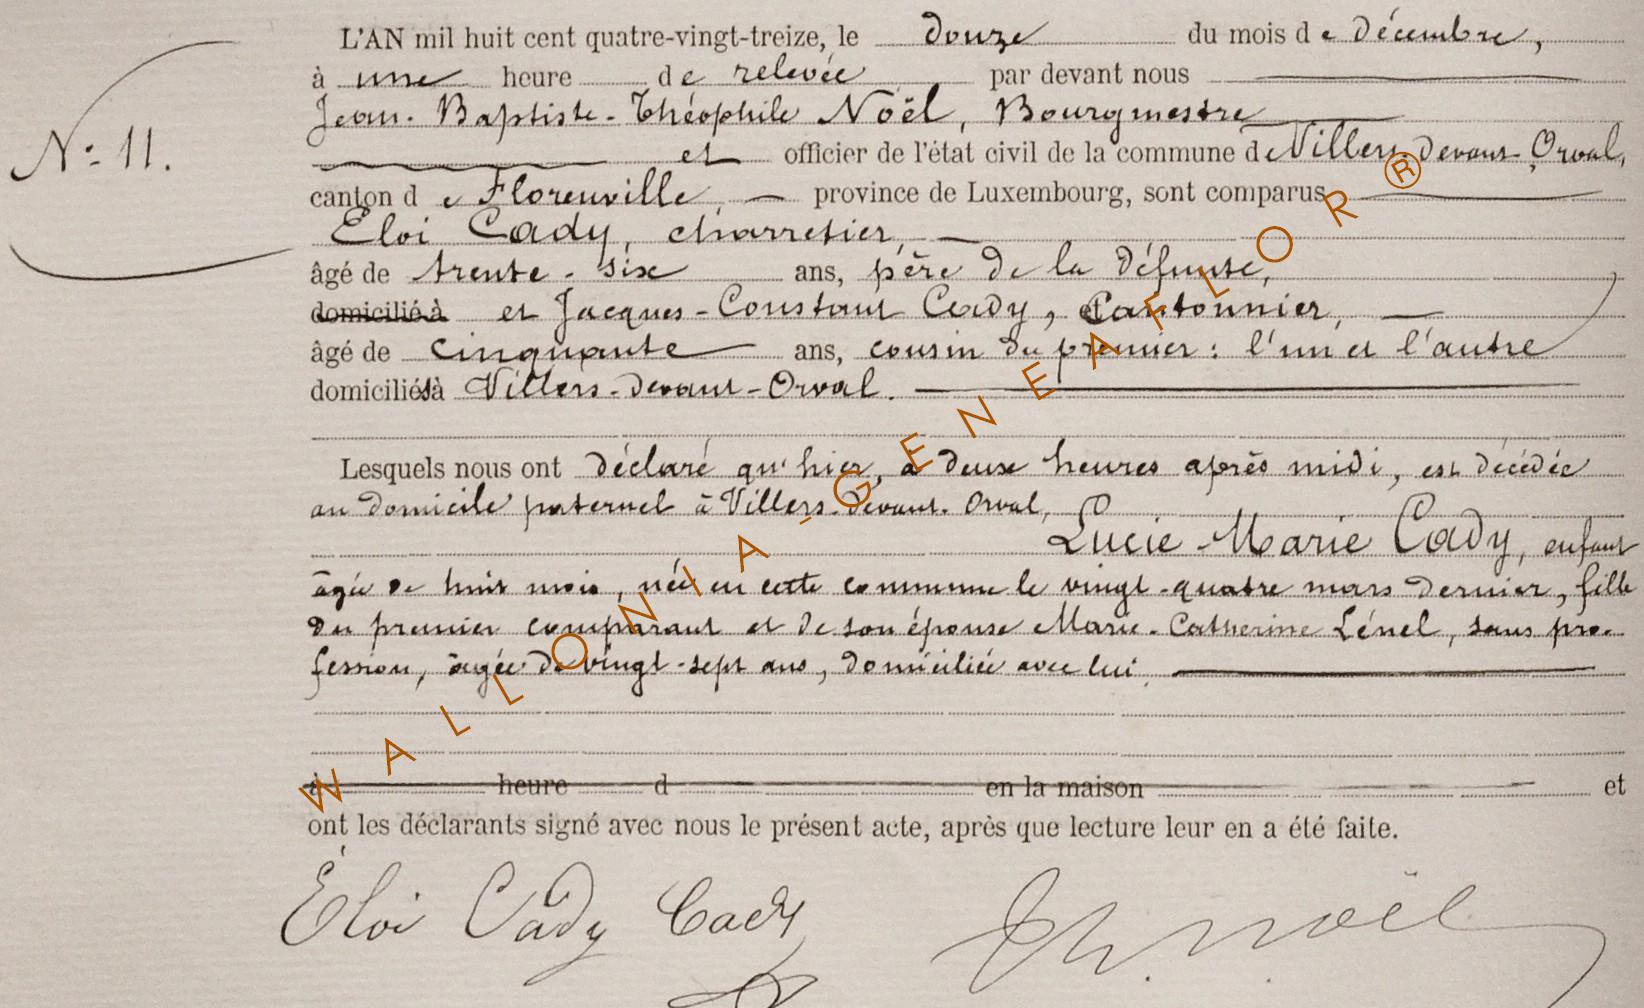 L'AN mil huit cent quatre-vingt-treize, le douze du mois de décembre,
à une heure de relevée par devant nous
Jean-Baptiste-Théophile Noël, Bourgmestre
N° 11.
et officier de l'état civil de la commune de Villers-devant-Orval,
canton de Florenville, province de Luxembourg, sont comparus
Éloi Cady, charretier,
âgé de trente-six ans, père de la défunte,
domicilié à et Jacques-Constant Cady, Cantonnier,
âgé de cinquante ans, cousin du premier : l'un et l'autre
domiciliés à Villers-devant-Orval.
Lesquels nous ont déclaré qu'hier, à deux heures après midi, est décédée
au domicile paternel à Villers-devant-Orval,
Lucie-Marie Cady, enfant
âgée de huit mois, née en cette commune le vingt-quatre mars dernier, fille
du premier comparant et de son épouse Marie-Catherine Lénel, sans pro-
fession, âgée de vingt-sept ans, domiciliée avec lui.
à heure d en la maison et
ont les déclarants signé avec nous le présent acte, après que lecture leur en a été faite.
Éloi Cady Cady Th. Noël
WALLONIA-GENEAFLOR®